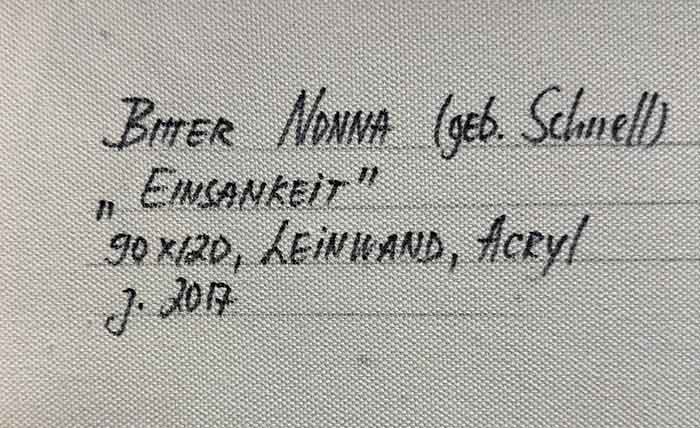 Bitter Nonna (geb. Schnell)
„Einsamkeit"
90x120, Leinwand, Acryl
J. 2017